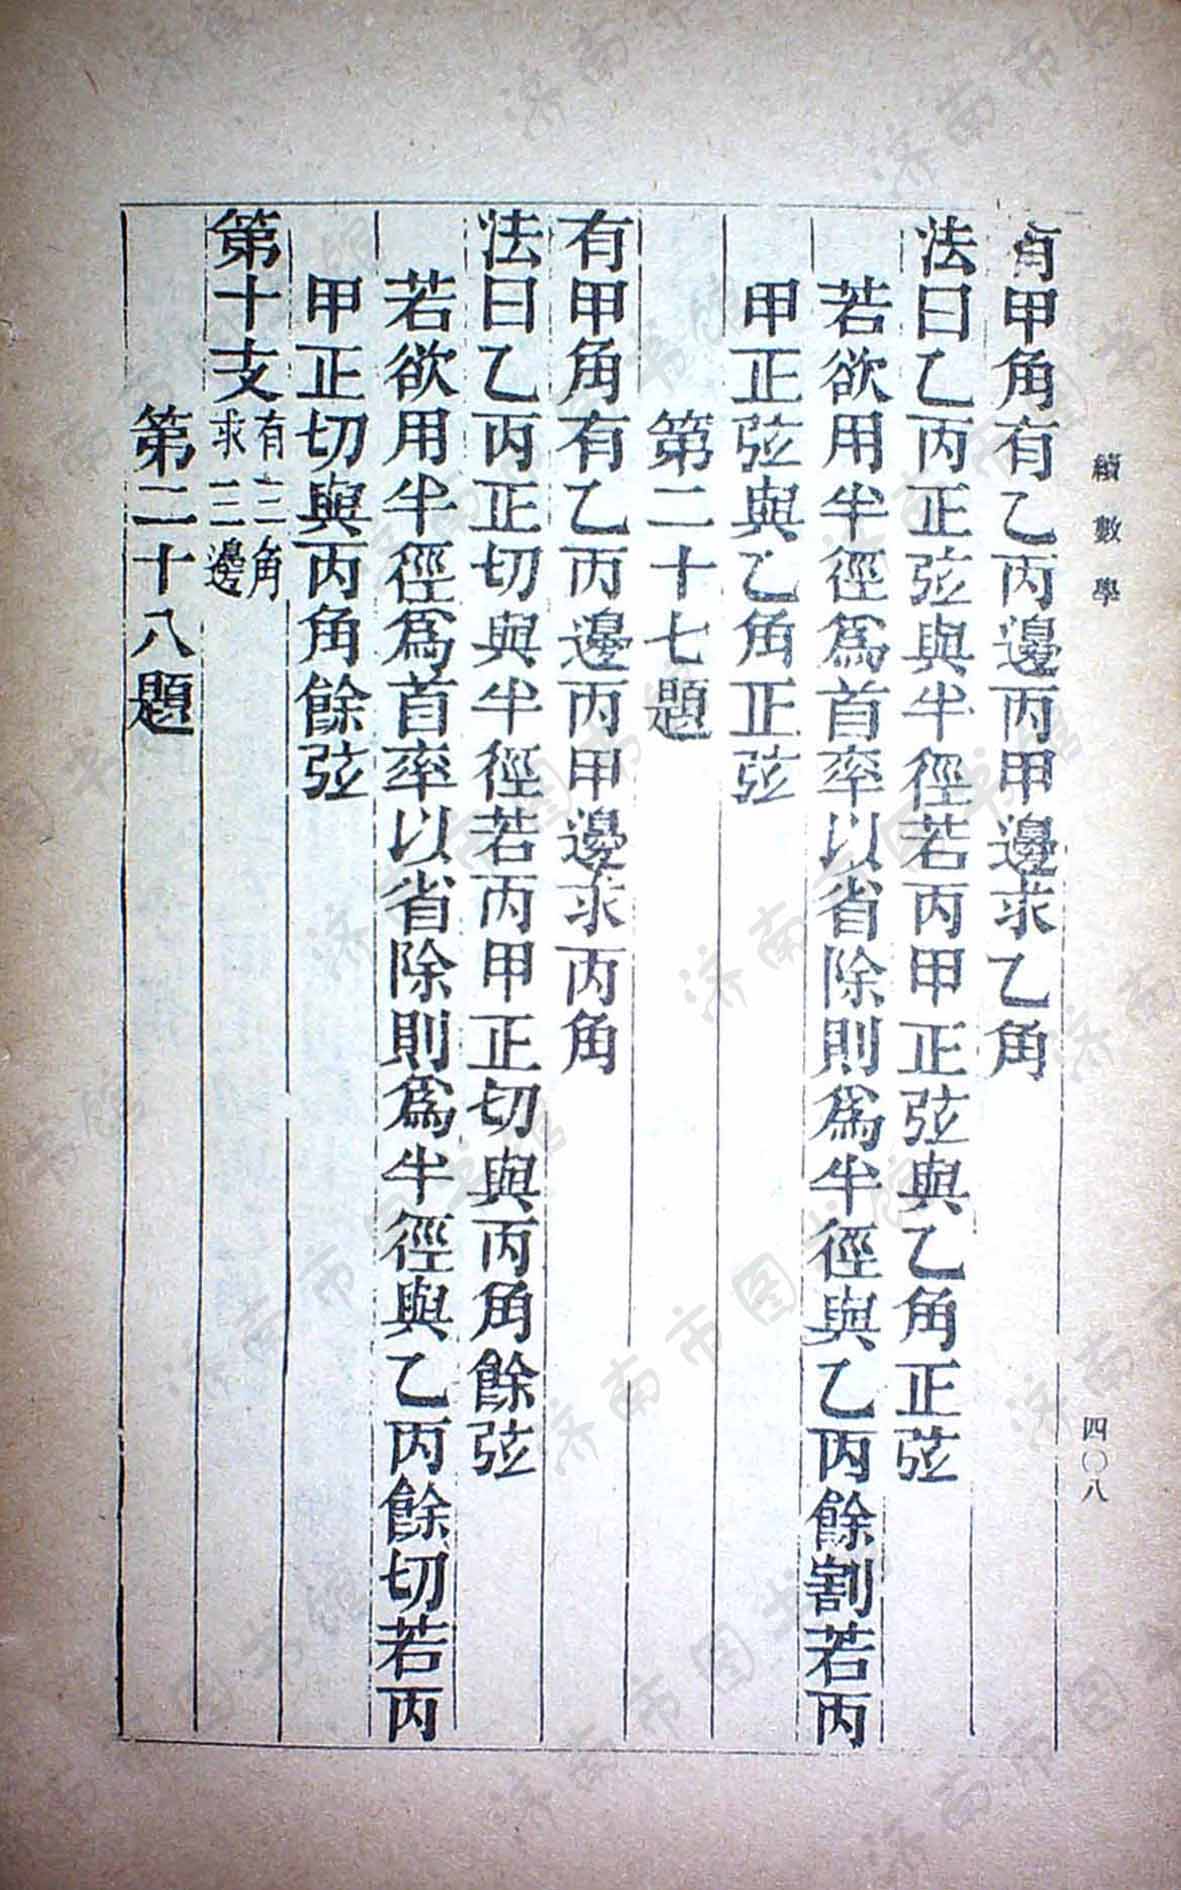 續數學
四〇八
有甲角有乙丙邊丙甲邊求乙角
法曰乙丙正弦與半徑若丙甲正弦與乙角正弦
若欲用半徑爲首率以省除則爲半徑與乙丙餘割若丙
甲正弦與乙角正弦
第二十七題
有甲角有乙丙邊丙甲邊求丙角
法曰乙丙正切與半徑若丙甲正切與丙角餘弦
若欲用半徑爲首率以省除則爲半徑與乙丙餘切若丙
甲正切與丙角餘弦
第十支有三角
求三邊
第二十八題
济南市图书馆